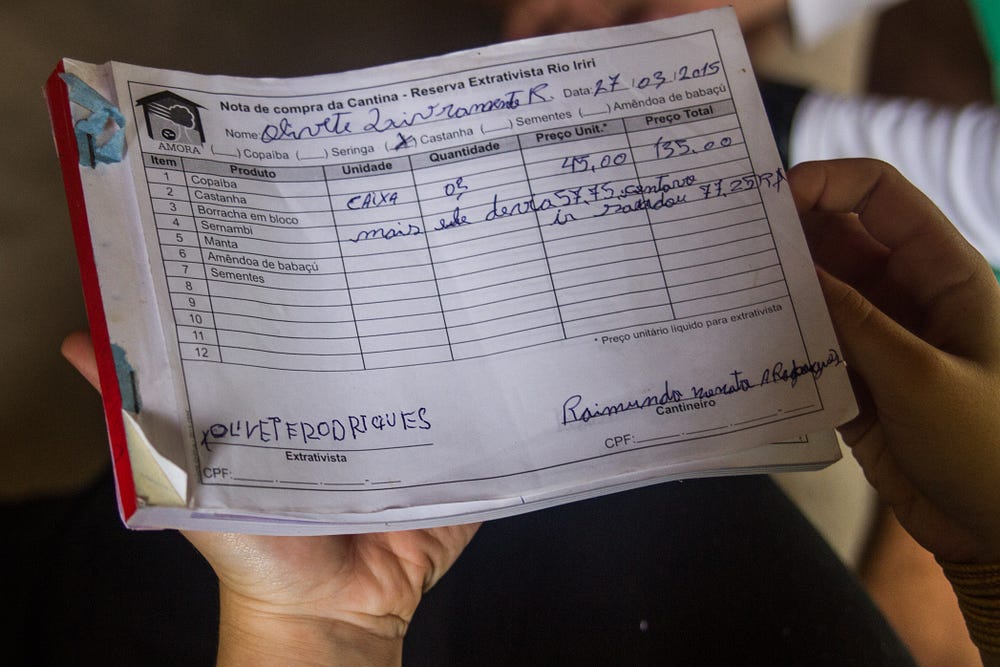 Nota de compra da Cantina - Reserva Extrativista Rio Iriri
Nome: Olivete R. Data: 27/03/2015
(__) Copaíba (__) Seringa (X) Castanha (__) Sementes (__) Amêndoa de babaçú
AMORA
Item Produto Unidade Quantidade Preço Unit.* Preço Total
1 Copaiba
2 Castanha CAIXA 03 45,00 135,00
3 Borracha em bloco mais ele devia 57,75 centavo
4 Sernambi in 77,25 R$
5 Manta
6 Amêndoa de babaçú
7 Sementes
8
9
10
11
12
* Preço unitário líquido para extrativista
XOLIVETERODRIGUES Raimundo nonato
Extrativista Cantineiro
CPF: CPF: